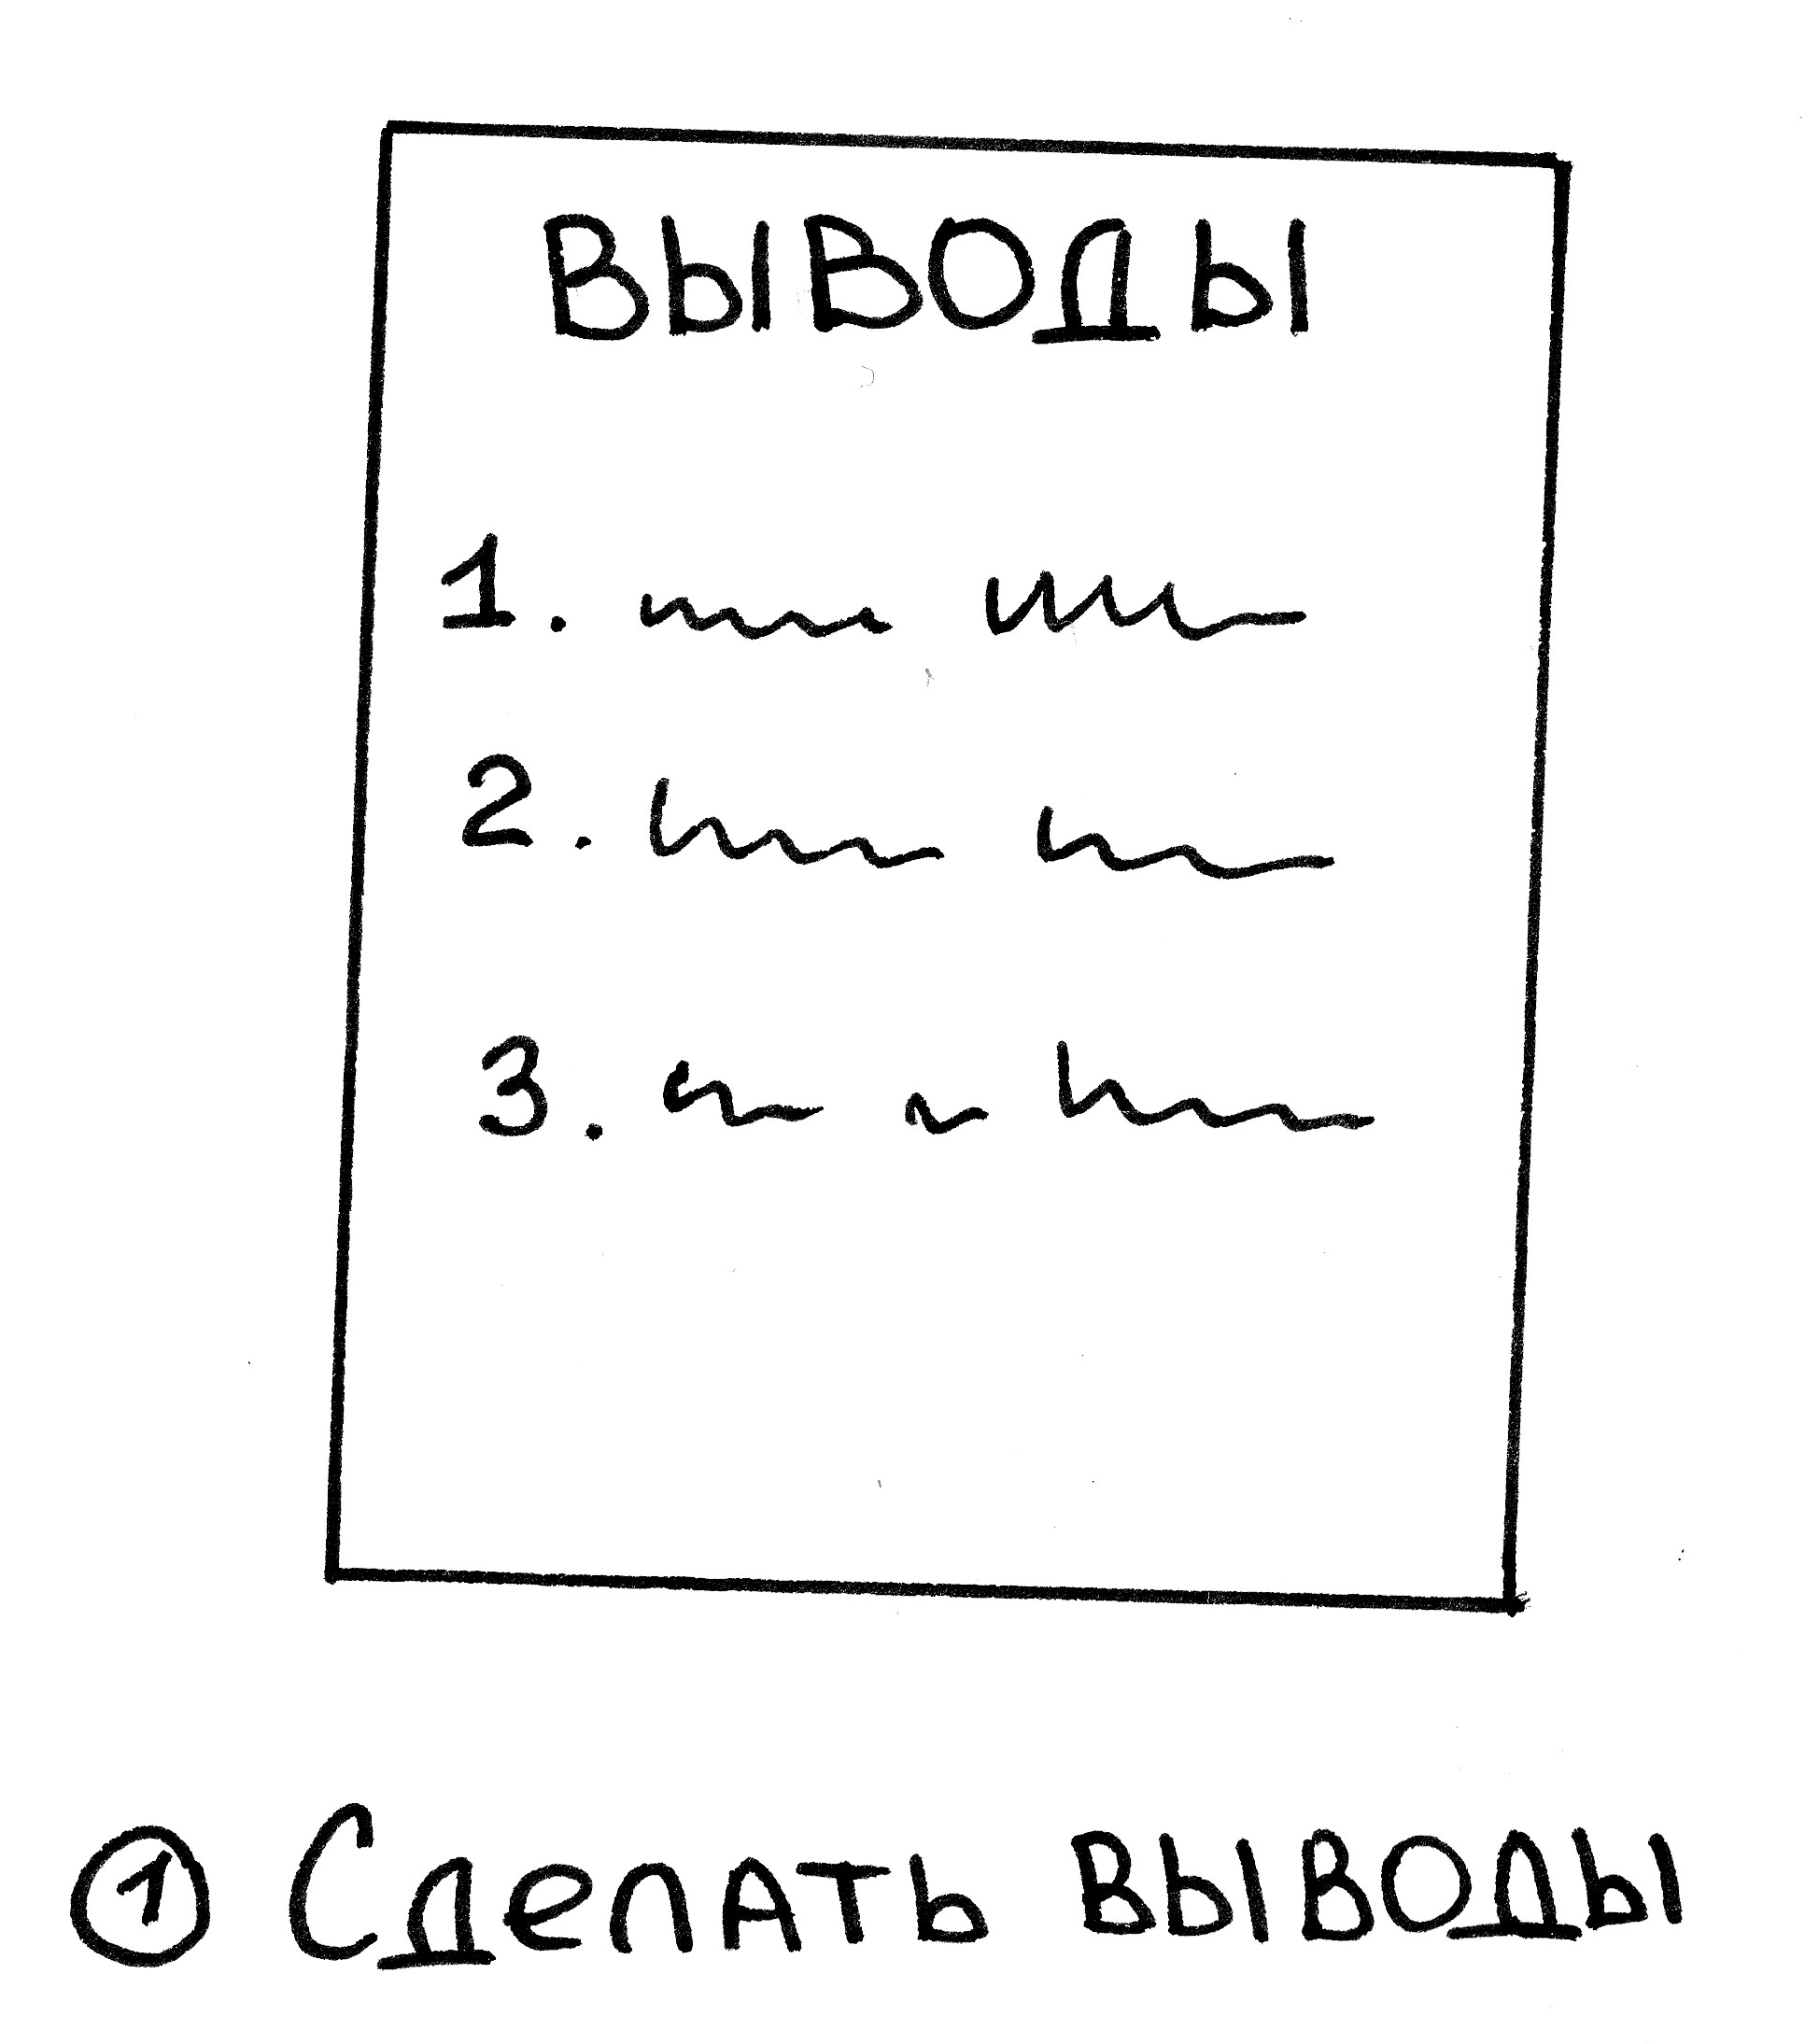 ВЫВОДЫ
1.
2.
3.
1 Сделать выводы